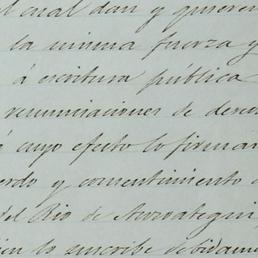 l cual dan y quieren
la misma fuerza y
á escritura pública
renunciaciones de derec
á cuyo efecto lo firman
erdo y consentimiento d
del Rio de Amategui
ien lo suscribe debidame